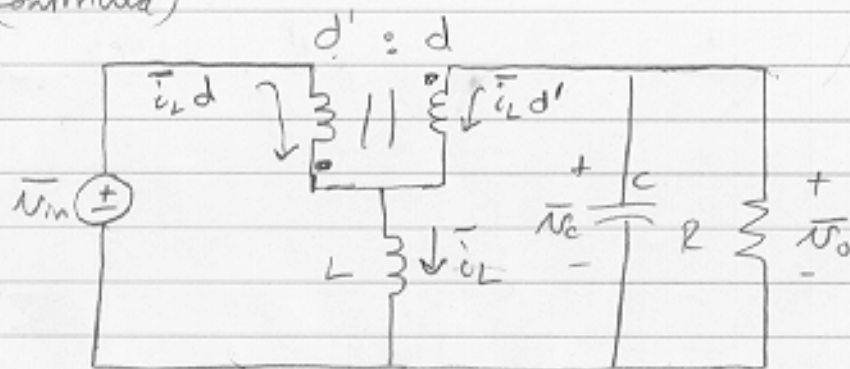 (continued)
d' : d
i̅_L d
i̅_L d'
v̅_in
L
i̅_L
+
v̅_c
-
C
R
+
v̅_o
-